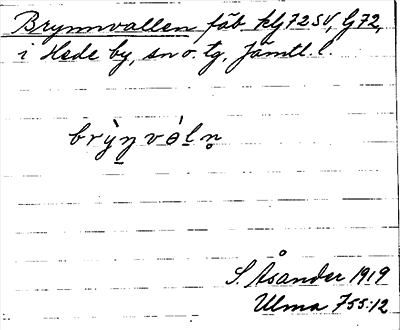 Brynnvallen fäb kg 72 SV, G 72,
i Hede by, sn o. tg, Jämtl. l.
brỳn̲ vɵ̀l̲n̥
S. Åsander 1919
Ulma 755:12